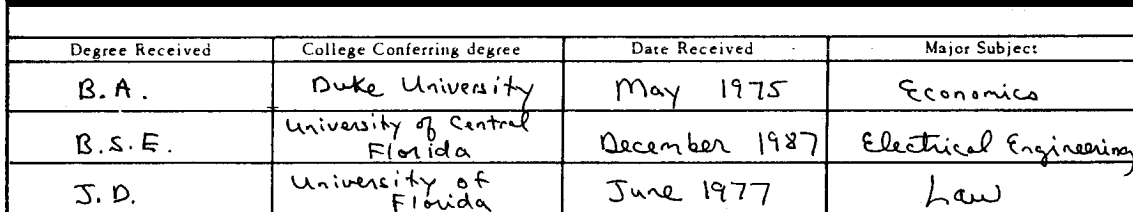 Degree Received College Conferring degree Date Received Major Subject
B.A. Duke University May 1975 Economics
B.S.E. University of Central Florida December 1987 Electrical Engineering
J.D. University of Florida June 1977 Law